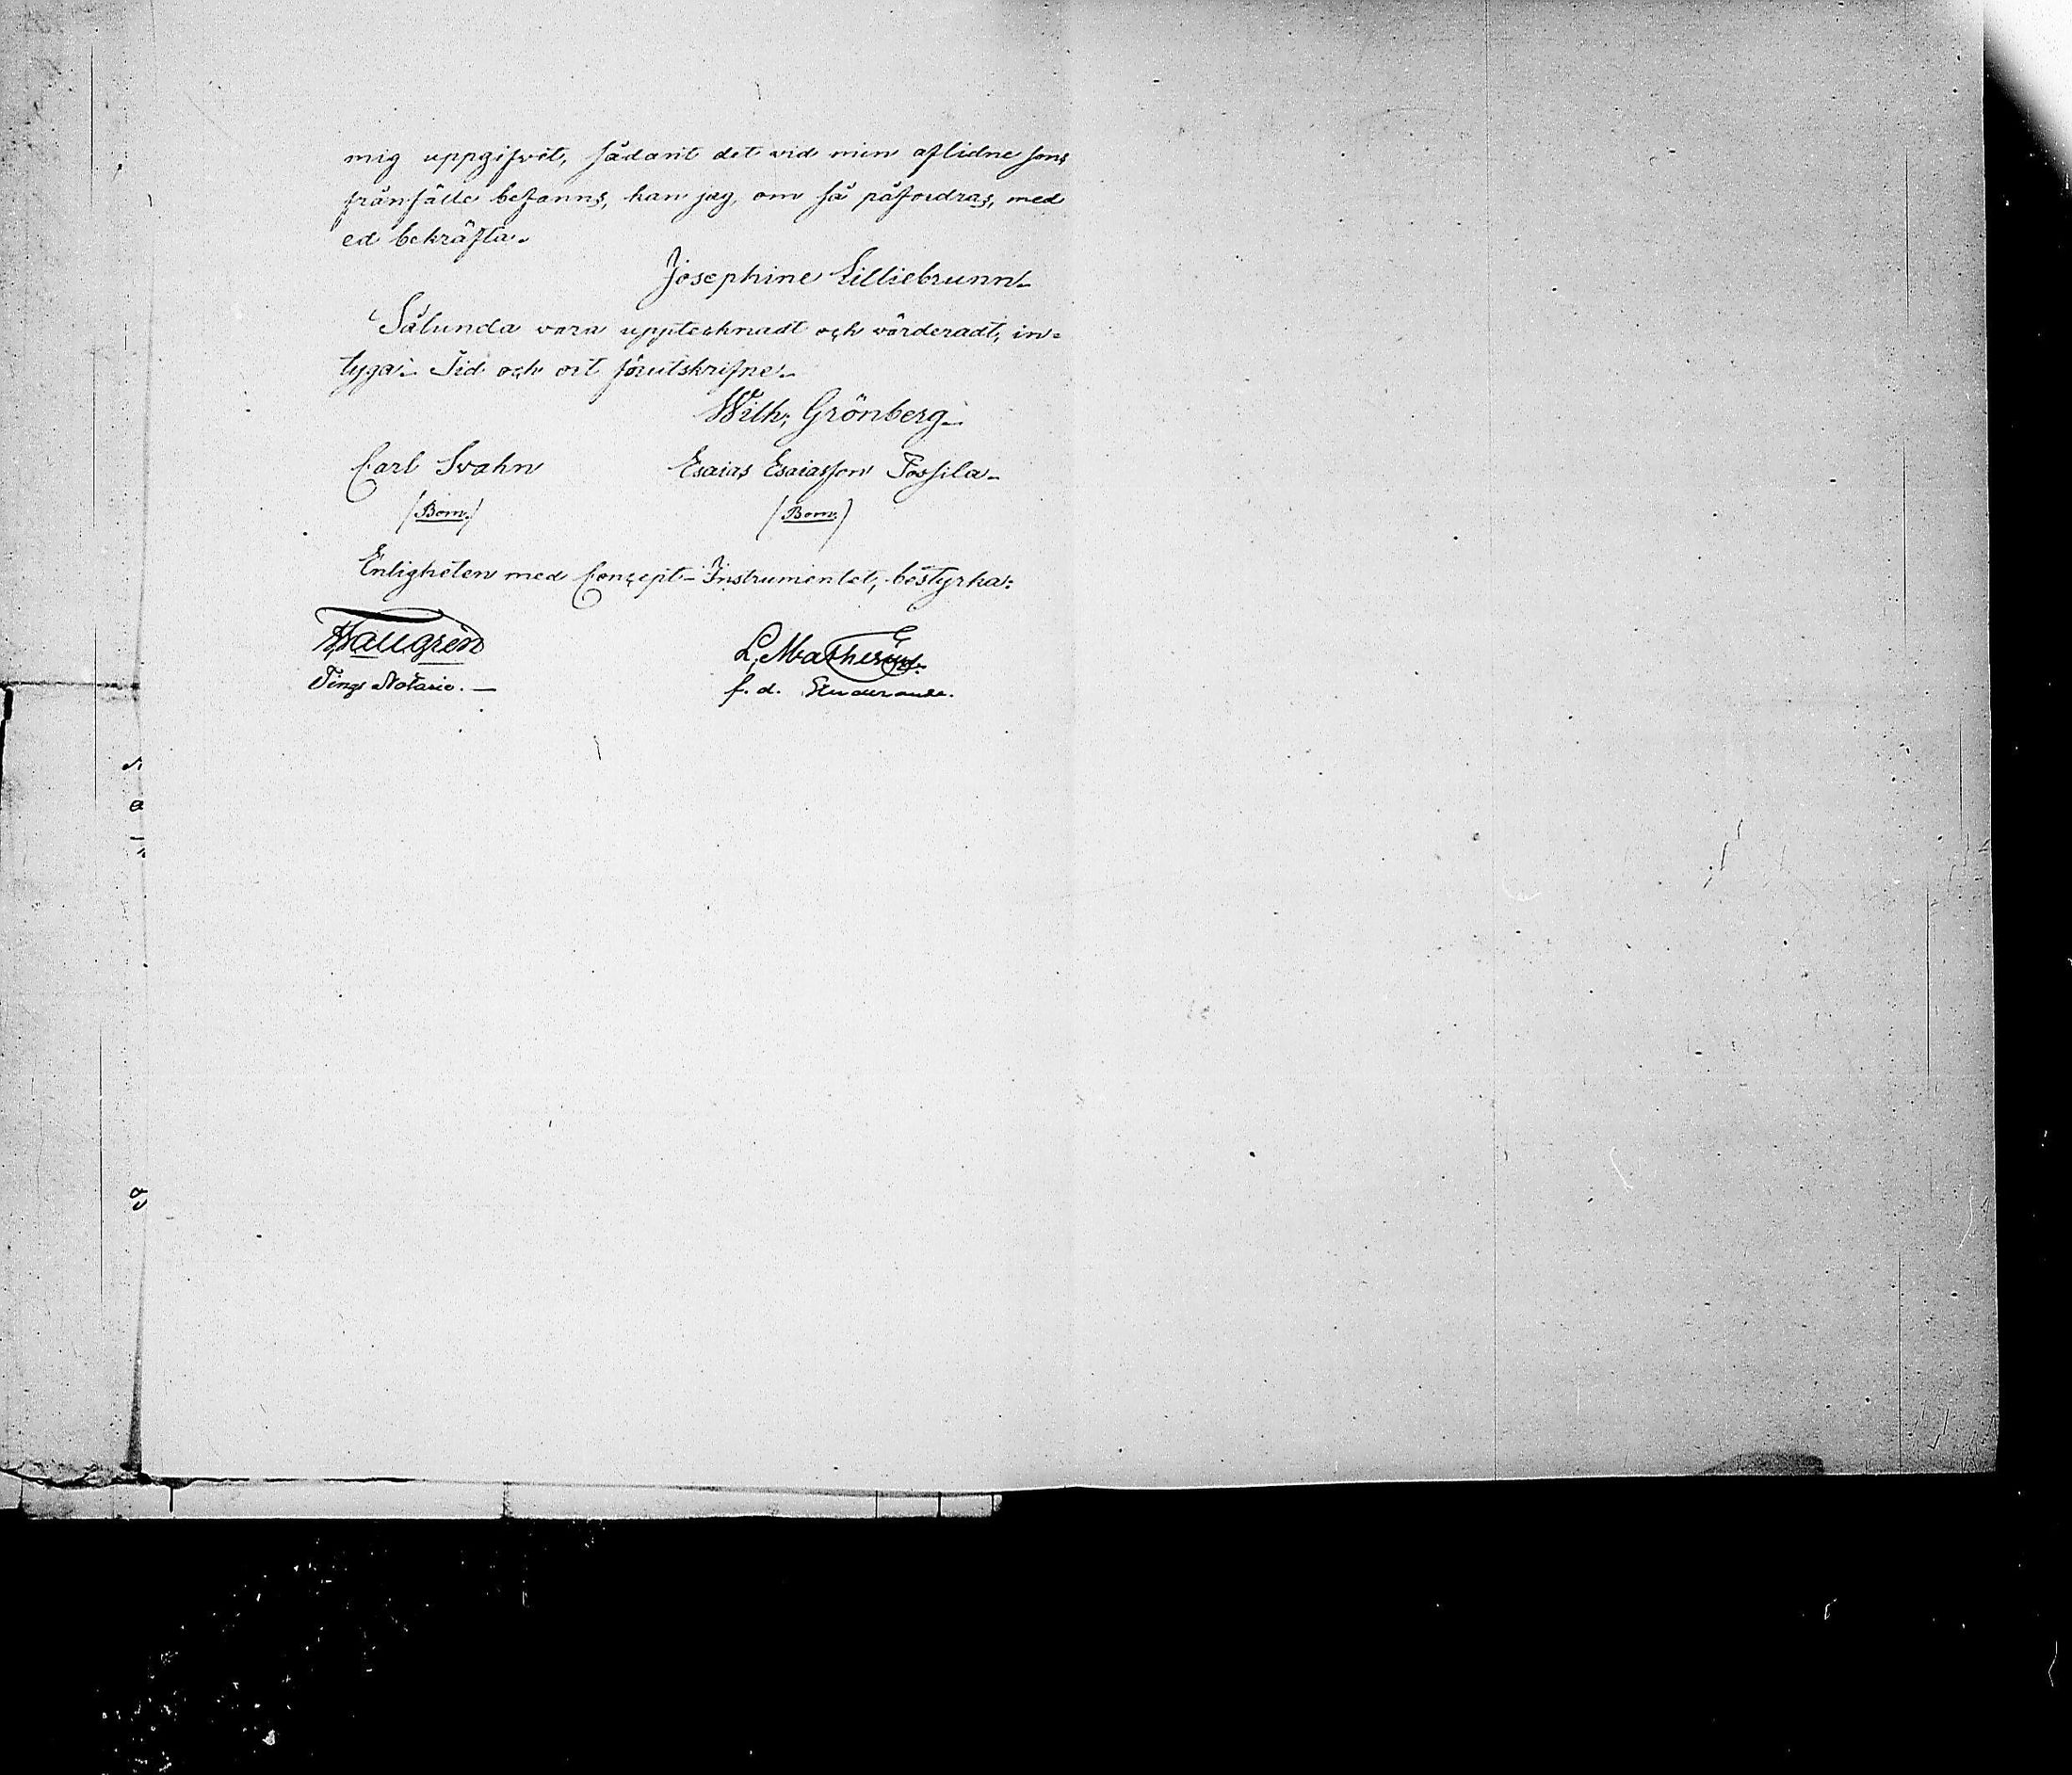 mig uppgifvit, sådant det vid min aflidne sons
frånfälle befanns, kan jag, om så påfordras, med
ed bekräfta.
Josephine Lilliebrunn
Sålunda vara upptecknadt och värderadt, in-
tyga. Tid och ort förutskrifne.
Wilh. Grönberg
Carl Svahn Esaias Esaiasson Possila
(Bom.) (Bom.)
Enligheten med Concept-Instrumentet, bestyrka:
L. Matheri
Tings Notarie. f. d. Studerande.